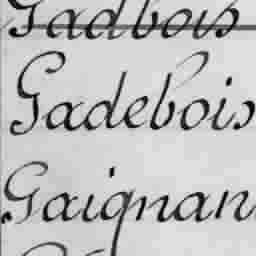 Gadbois
Gadebois
Gaignan